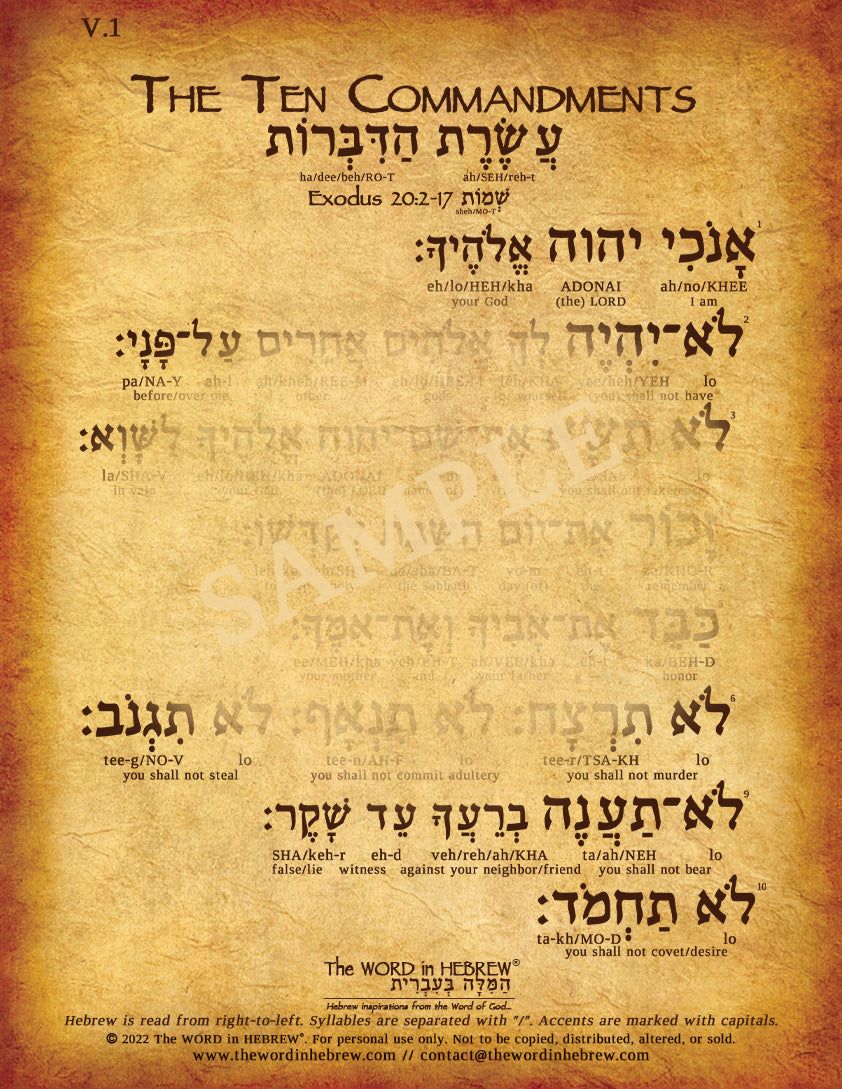 V.1
The Ten Commandments
עֲשֶׂרֶת הַדִּבְּרוֹת
ha/dee/beh/RO-T ah/SEH/reh-t
Exodus 20:2-17 שְׁמוֹת
sheh/MO-T
1 אָנֹכִי יהוה אֱלֹהֶיךָ׃
eh/lo/HEH/kha ADONAI ah/no/KHEE
your God (the) LORD I am
2 לֹא־יִהְיֶה לְךָ אֱלֹהִים אֲחֵרִים עַל־פָּנָי׃
pa/NA-Y ah-l ah/kheh/REE-M eh/lo/HEE-M leh/KHA yee/heh/YEH lo
before/over me other gods to yourself (you) shall not have
3 לֹא תִשָּׂא אֶת־שֵׁם־יהוה אֱלֹהֶיךָ לַשָּׁוְא׃
la/SHA-V eh/lo/HEH/kha ADONAI lo
in vain your God (the) LORD name (of) you shall not take/carry
זָכוֹר אֶת־יוֹם הַשַּׁבָּת לְקַדְּשׁוֹ׃
ha/sha/BA-T yo-m eh-t za/KHO-R
the Sabbath day (of) the remember
5 כַּבֵּד אֶת־אָבִיךָ וְאֶת־אִמֶּךָ׃
ee/MEH/kha veh/EH-T ah/VEE/kha eh-t ka/BEH-D
your mother and your father honor
6 לֹא תִרְצָח׃ לֹא תִנְאָף׃ לֹא תִגְנֹב׃
tee-g/NO-V lo tee-n/AH-F lo tee-r/TSA-KH lo
you shall not steal you shall not commit adultery you shall not murder
9 לֹא־תַעֲנֶה בְרֵעֲךָ עֵד שָׁקֶר׃
SHA/keh-r eh-d veh/reh/ah/KHA ta/ah/NEH lo
false/lie witness against your neighbor/friend you shall not bear
10 לֹא תַחְמֹד׃
ta-kh/MO-D lo
you shall not covet/desire
The WORD in HEBREW®
הַמִּלָּה בְּעִבְרִית
Hebrew inspirations from the Word of God...
Hebrew is read from right-to-left. Syllables are separated with "/". Accents are marked with capitals.
© 2022 The WORD in HEBREW®. For personal use only. Not to be copied, distributed, altered, or sold.
www.thewordinhebrew.com // contact@thewordinhebrew.com
SAMPLE